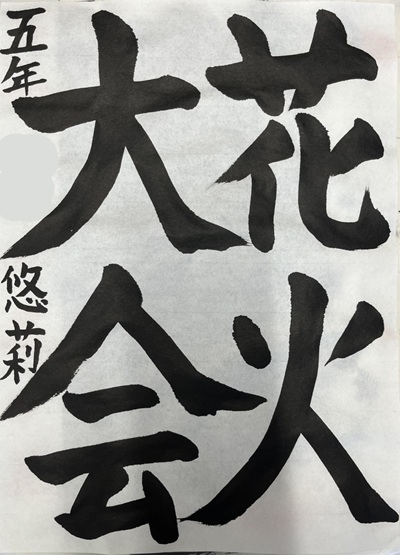 花火
大会
五年
悠莉